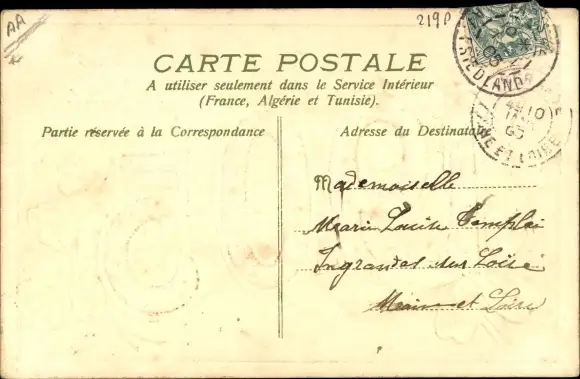 AA
219P
CARTE POSTALE
A utiliser seulement dans le Service Intérieur
(France, Algérie et Tunisie).
Partie réservée à la Correspondance
Adresse du Destinataire
Mademoiselle
Marie Louise
Ingrandes sur Loire
Maine et Loire
10
ET LOIRE